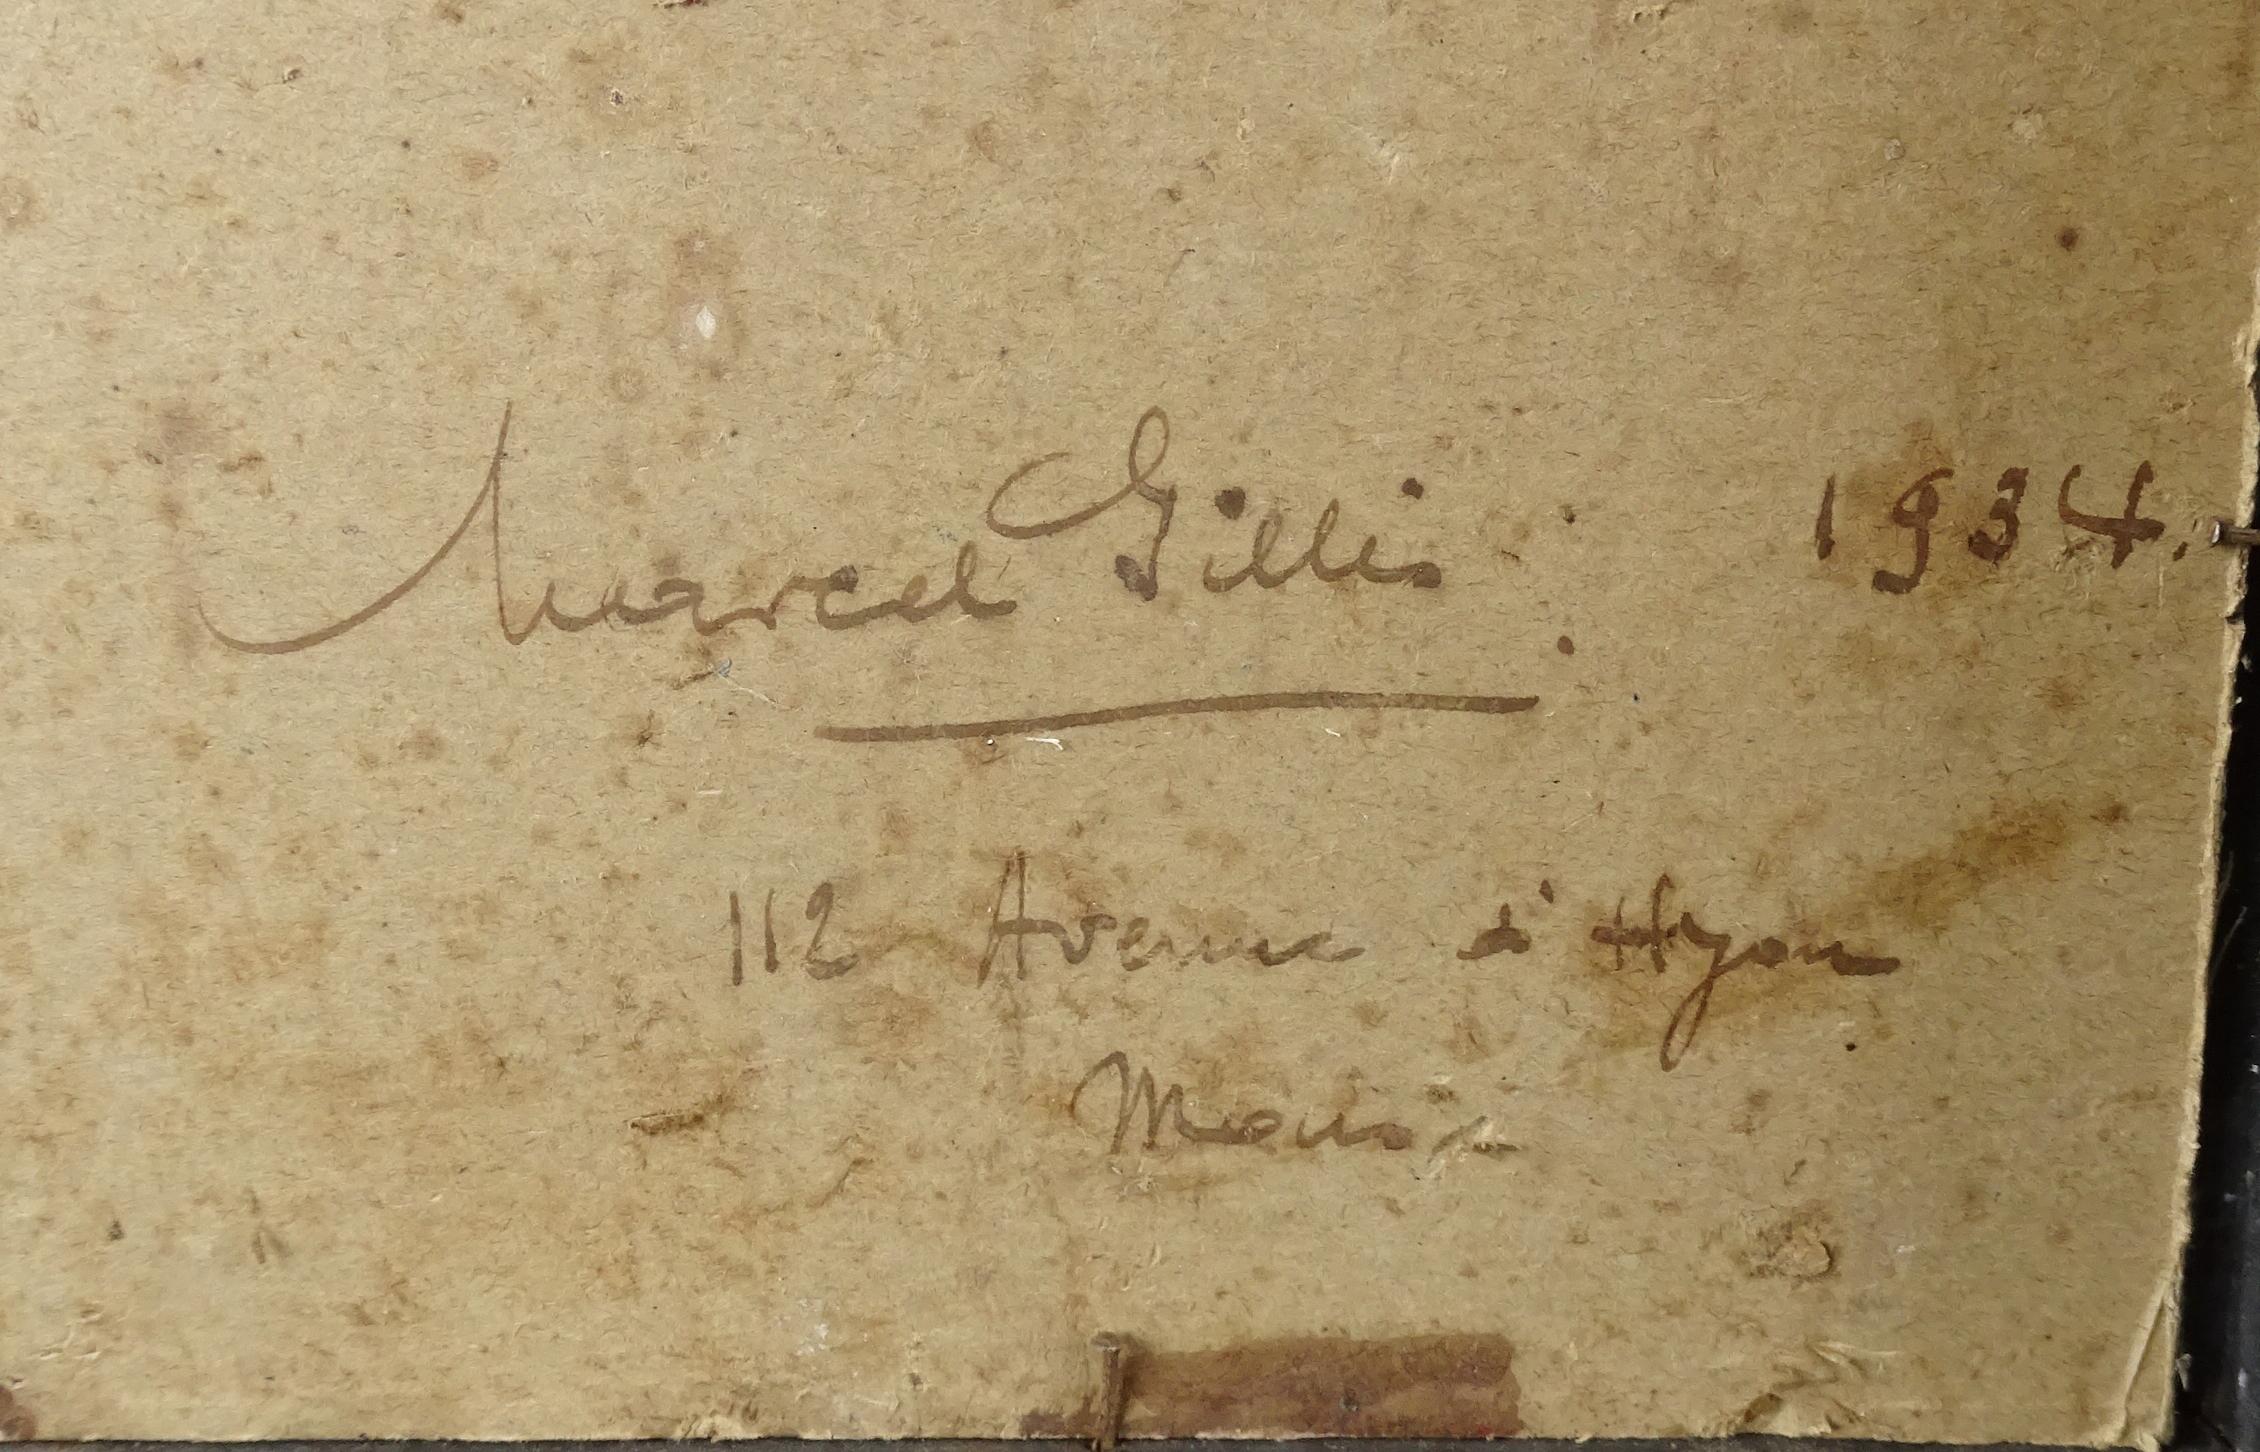 Marcel Gillis : 1934.
112 Avenue d'Hyon
Mons